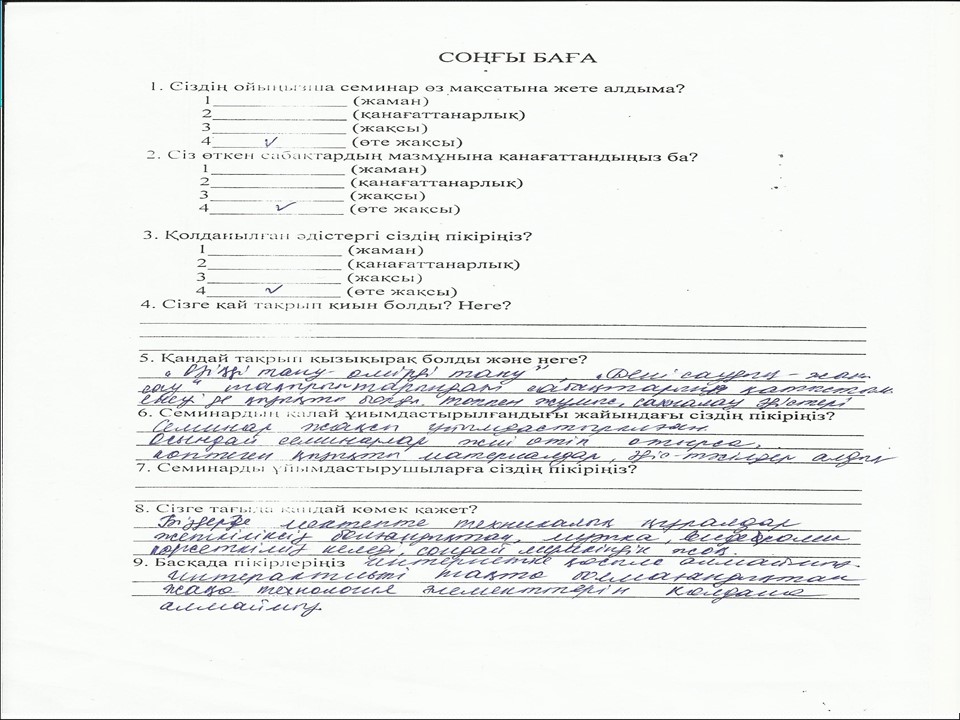 СОҢҒЫ БАҒА
1. Сіздің ойыңызша семинар өз мақсатына жете алдыма?
1______________ (жаман)
2______________ (қанағаттанарлық)
3______________ (жақсы)
4______✓_______ (өте жақсы)
2. Сіз өткен сабақтардың мазмұнына қанағаттандыңыз ба?
1______________ (жаман)
2______________ (қанағаттанарлық)
3______________ (жақсы)
4______✓_______ (өте жақсы)
3. Қолданылған әдістергі сіздің пікіріңіз?
1______________ (жаман)
2______________ (қанағаттанарлық)
3______________ (жақсы)
4______✓_______ (өте жақсы)
4. Сізге қай тақрып қиын болды? Неге?
5. Қандай тақрып қызықырақ болды және неге?
„Өзіңді тану - өмірді тану", „Дені саудың - жаны
сау" тақырыптарындағы сабақтарға қатысқан
екеуі де қызықты болды. Топпен жұмыс, бағалау әдістері
6. Семинардың қалай ұйымдастырылғандығы жайындағы сіздің пікіріңіз?
Семинар жақсы ұйымдастырылған.
Осындай семинарлар жиі өтіп отырса,
көптеген қызықты материалдар, әдіс-тәсілдер алдық
7. Семинарды ұйымдастырушыларға сіздің пікіріңіз?
8. Сізге тағыда қандай көмек қажет?
Біздерде мектепте техникалық құралдар
жеткіліксіз болғандықтан, видеоролик
көрсеткіміз келеді, сондай мүмкіндік жоқ.
9. Басқада пікірлеріңіз интернетке қосыла алмаймыз.
Интерактивті тақта болмағандықтан
жаңа технология элементтерін қолдана
алмаймыз